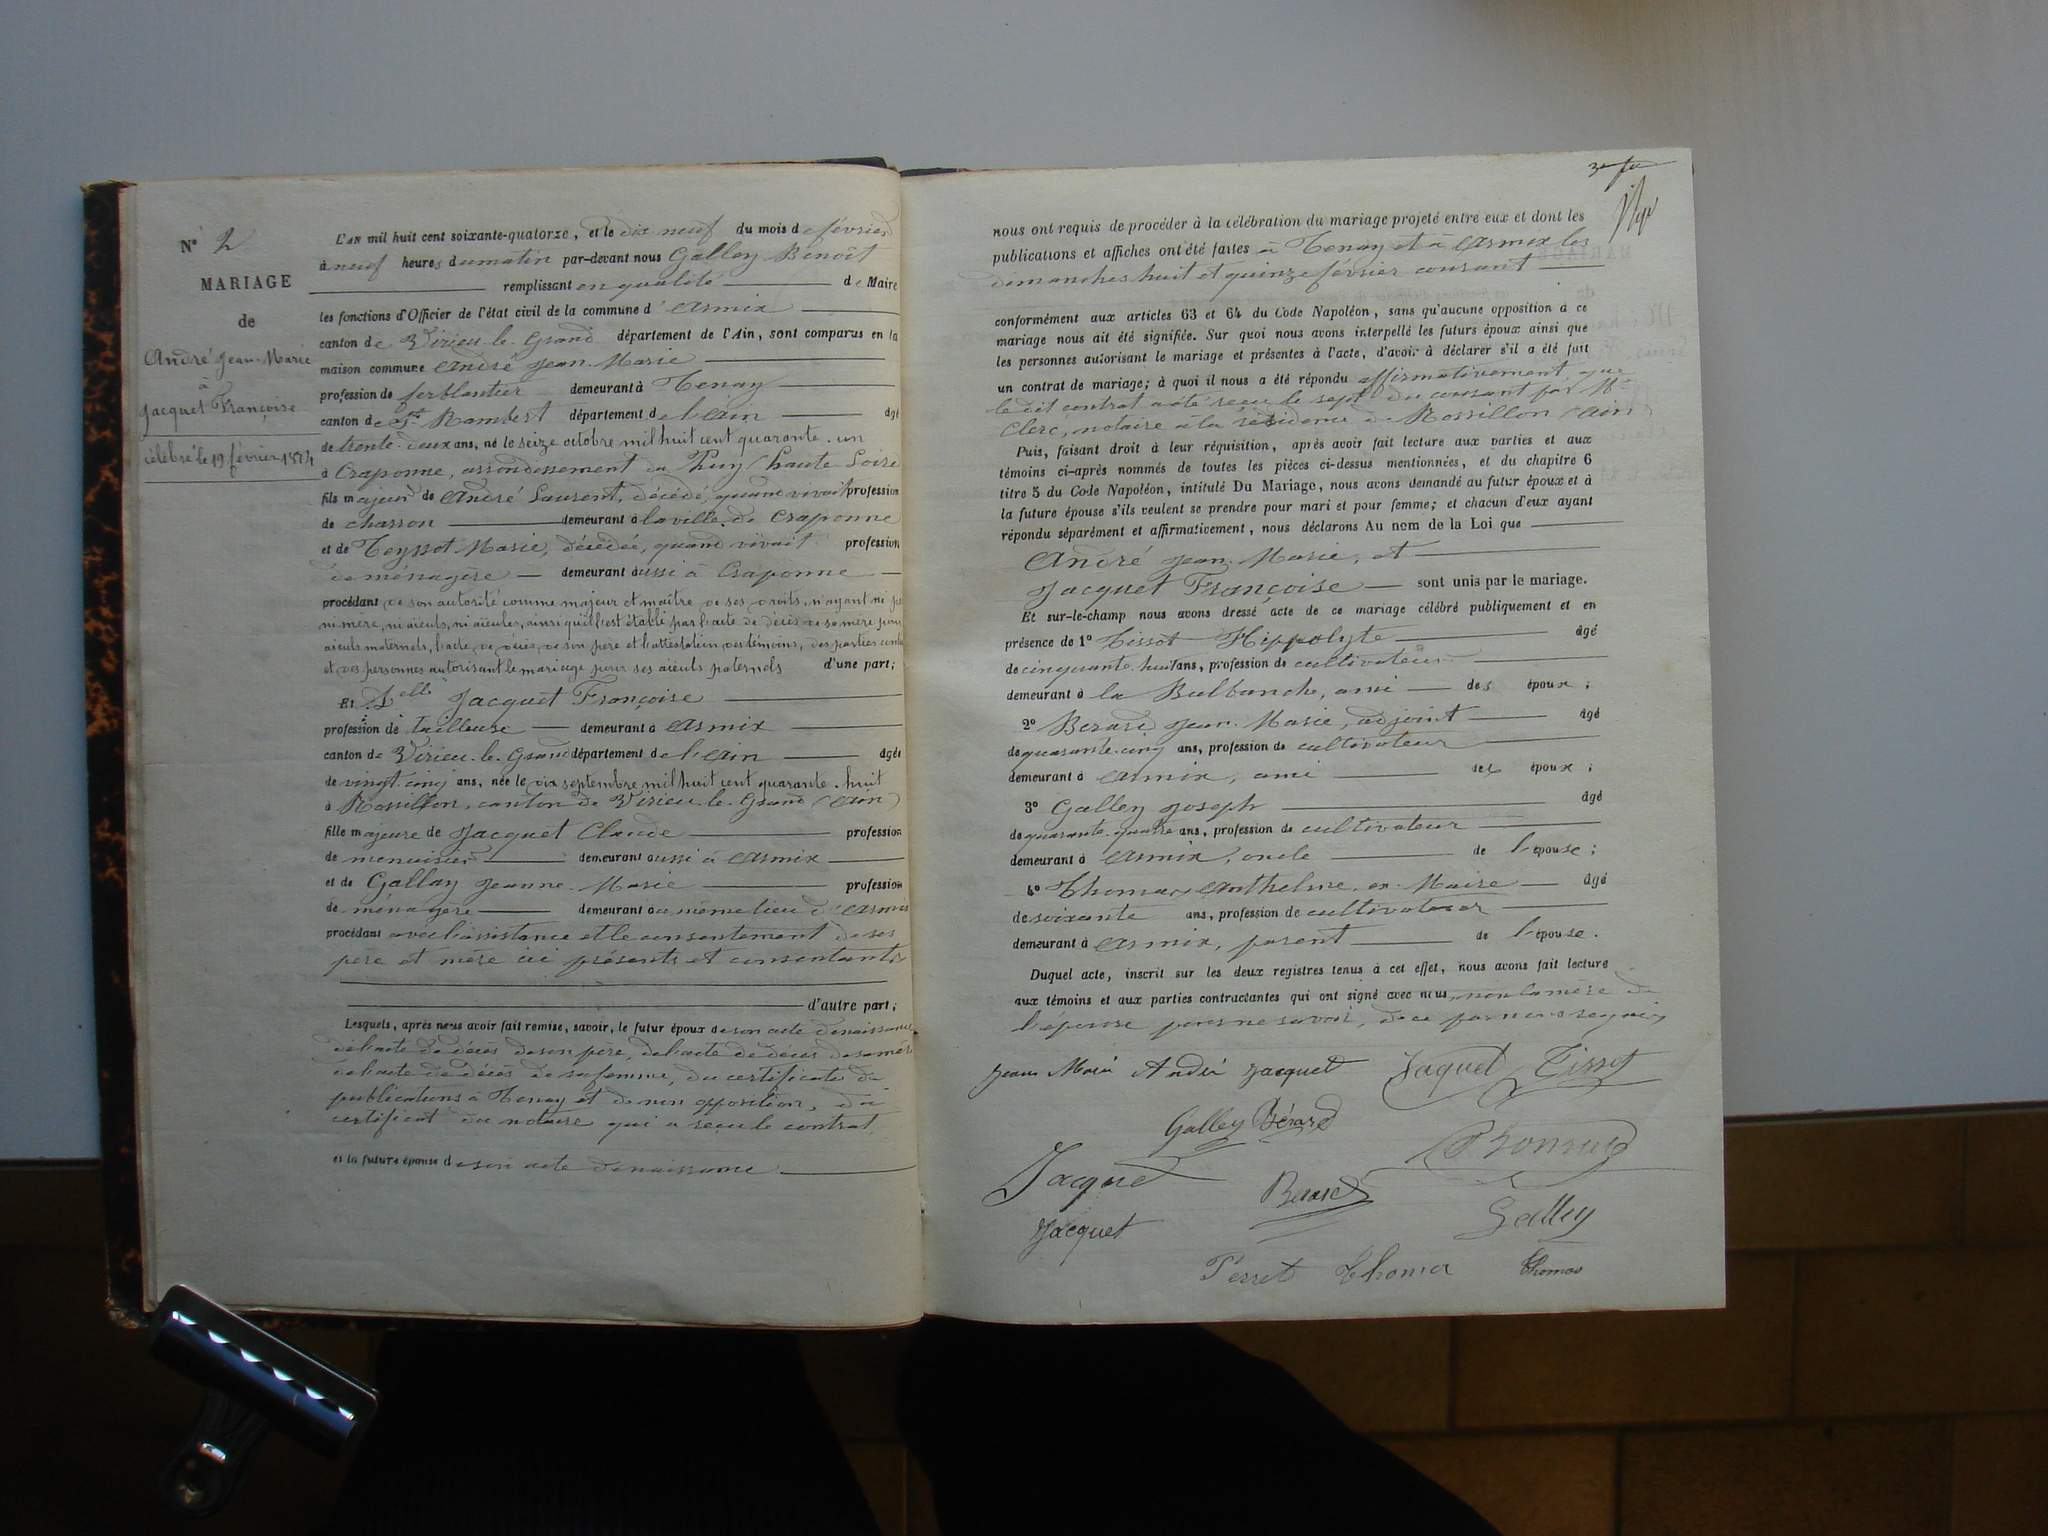 N° 2
MARIAGE
de
André Jean-Marie
à
Jacquet Françoise
célébré le 19 février 1874
L'AN mil huit cent soixante-quatorze, et le dix neuf du mois de février
à neuf heures du matin par-devant nous Galley Benoît
remplissant en qualité de Maire
les fonctions d'Officier de l'état civil de la commune d'Armix
canton de Virieu-le-Grand département de l'Ain, sont comparus en la
maison commune André Jean-Marie
profession de ferblantier demeurant à Tenay
canton de St Rambert département de l'Ain âgé
de trente-deux ans, né le seize octobre mil huit cent quarante-un
à Craponne, arrondissement du Puy (haute Loire
fils majeur de André Laurent, décédé, quand vivait profession
de charron demeurant à la ville de Craponne
et de Teyssot Marie, décédée, quand vivait profession
de ménagère demeurant aussi à Craponne
procédant de son autorité comme majeur et maître de ses droits, n'ayant ni père
ni mère, ni aïeuls, ni aïeules, ainsi qu'il est établi par l'acte de décès de sa mère pour
aïeuls maternels, l'acte de décès de son père et l'attestation des témoins, des parties
et des personnes autorisant le mariage pour ses aïeuls paternels d'une part;
Et Delle Jacquet Françoise
profession de tailleuse demeurant à Armix
canton de Virieu-le-Grand département de l'Ain âgée
de vingt-cinq ans, née le dix septembre mil huit cent quarante-huit
à Rossillon, canton de Virieu-le-Grand (Ain)
fille majeure de Jacquet Claude profession
de menuisier demeurant aussi à Armix
et de Gallay Jeanne-Marie profession
de ménagère demeurant au même lieu d'Armix
procédant avec l'assistance et le consentement de ses
père et mère ici présents et consentants
d'autre part;
Lesquels, après nous avoir fait remise, savoir, le futur époux de son acte de naissance
de l'acte de décès de son père, de l'acte de décès de sa mère
de l'acte de décès de sa femme, du certificat de
publications à Tenay et de non opposition, du
certificat du notaire qui a reçu le contrat
et la future épouse de son acte de naissance
nous ont requis de procéder à la célébration du mariage projeté entre eux et dont les
publications et affiches ont été faites à Tenay et à Armix les
dimanches huit et quinze février courant
conformément aux articles 63 et 64 du Code Napoléon, sans qu'aucune opposition à ce
mariage nous ait été signifiée. Sur quoi nous avons interpellé les futurs époux ainsi que
les personnes autorisant le mariage et présentes à l'acte, d'avoir à déclarer s'il a été fait
un contrat de mariage; à quoi il nous a été répondu affirmativement, que
le dit contrat a été reçu le sept du courant par Me
Clerc, notaire à la résidence de Rossillon (Ain
Puis, faisant droit à leur réquisition, après avoir fait lecture aux parties et aux
témoins ci-après nommés de toutes les pièces ci-dessus mentionnées, et du chapitre 6
titre 5 du Code Napoléon, intitulé Du Mariage, nous avons demandé au futur époux et à
la future épouse s'ils veulent se prendre pour mari et pour femme; et chacun d'eux ayant
répondu séparément et affirmativement, nous déclarons Au nom de la Loi que
André Jean-Marie, et
Jacquet Françoise sont unis par le mariage.
Et sur-le-champ nous avons dressé acte de ce mariage célébré publiquement et en
présence de 1° Tissot Hippolyte âgé
de cinquante-huit ans, profession de cultivateur
demeurant à la Bulbanche, ami des époux;
2° Berard Jean-Marie, adjoint âgé
de quarante-cinq ans, profession de cultivateur
demeurant à Armix, ami des époux;
3° Galley Joseph âgé
de quarante-quatre ans, profession de cultivateur
demeurant à Armix, oncle de l'épouse;
4° Thomas Anthelme, ex-Maire âgé
de soixante ans, profession de cultivateur
demeurant à Armix, parent de l'épouse.
Duquel acte, inscrit sur les deux registres tenus à cet effet, nous avons fait lecture
aux témoins et aux parties contractantes qui ont signé avec nous, non la mère de
l'épouse pour ne savoir, de ce par nous requis
Jean Marie André Jacquet Jaquet Tissot
Galley Bérard
Jacquet Berard Galley
Jacquet
Perret Thomas Thomas